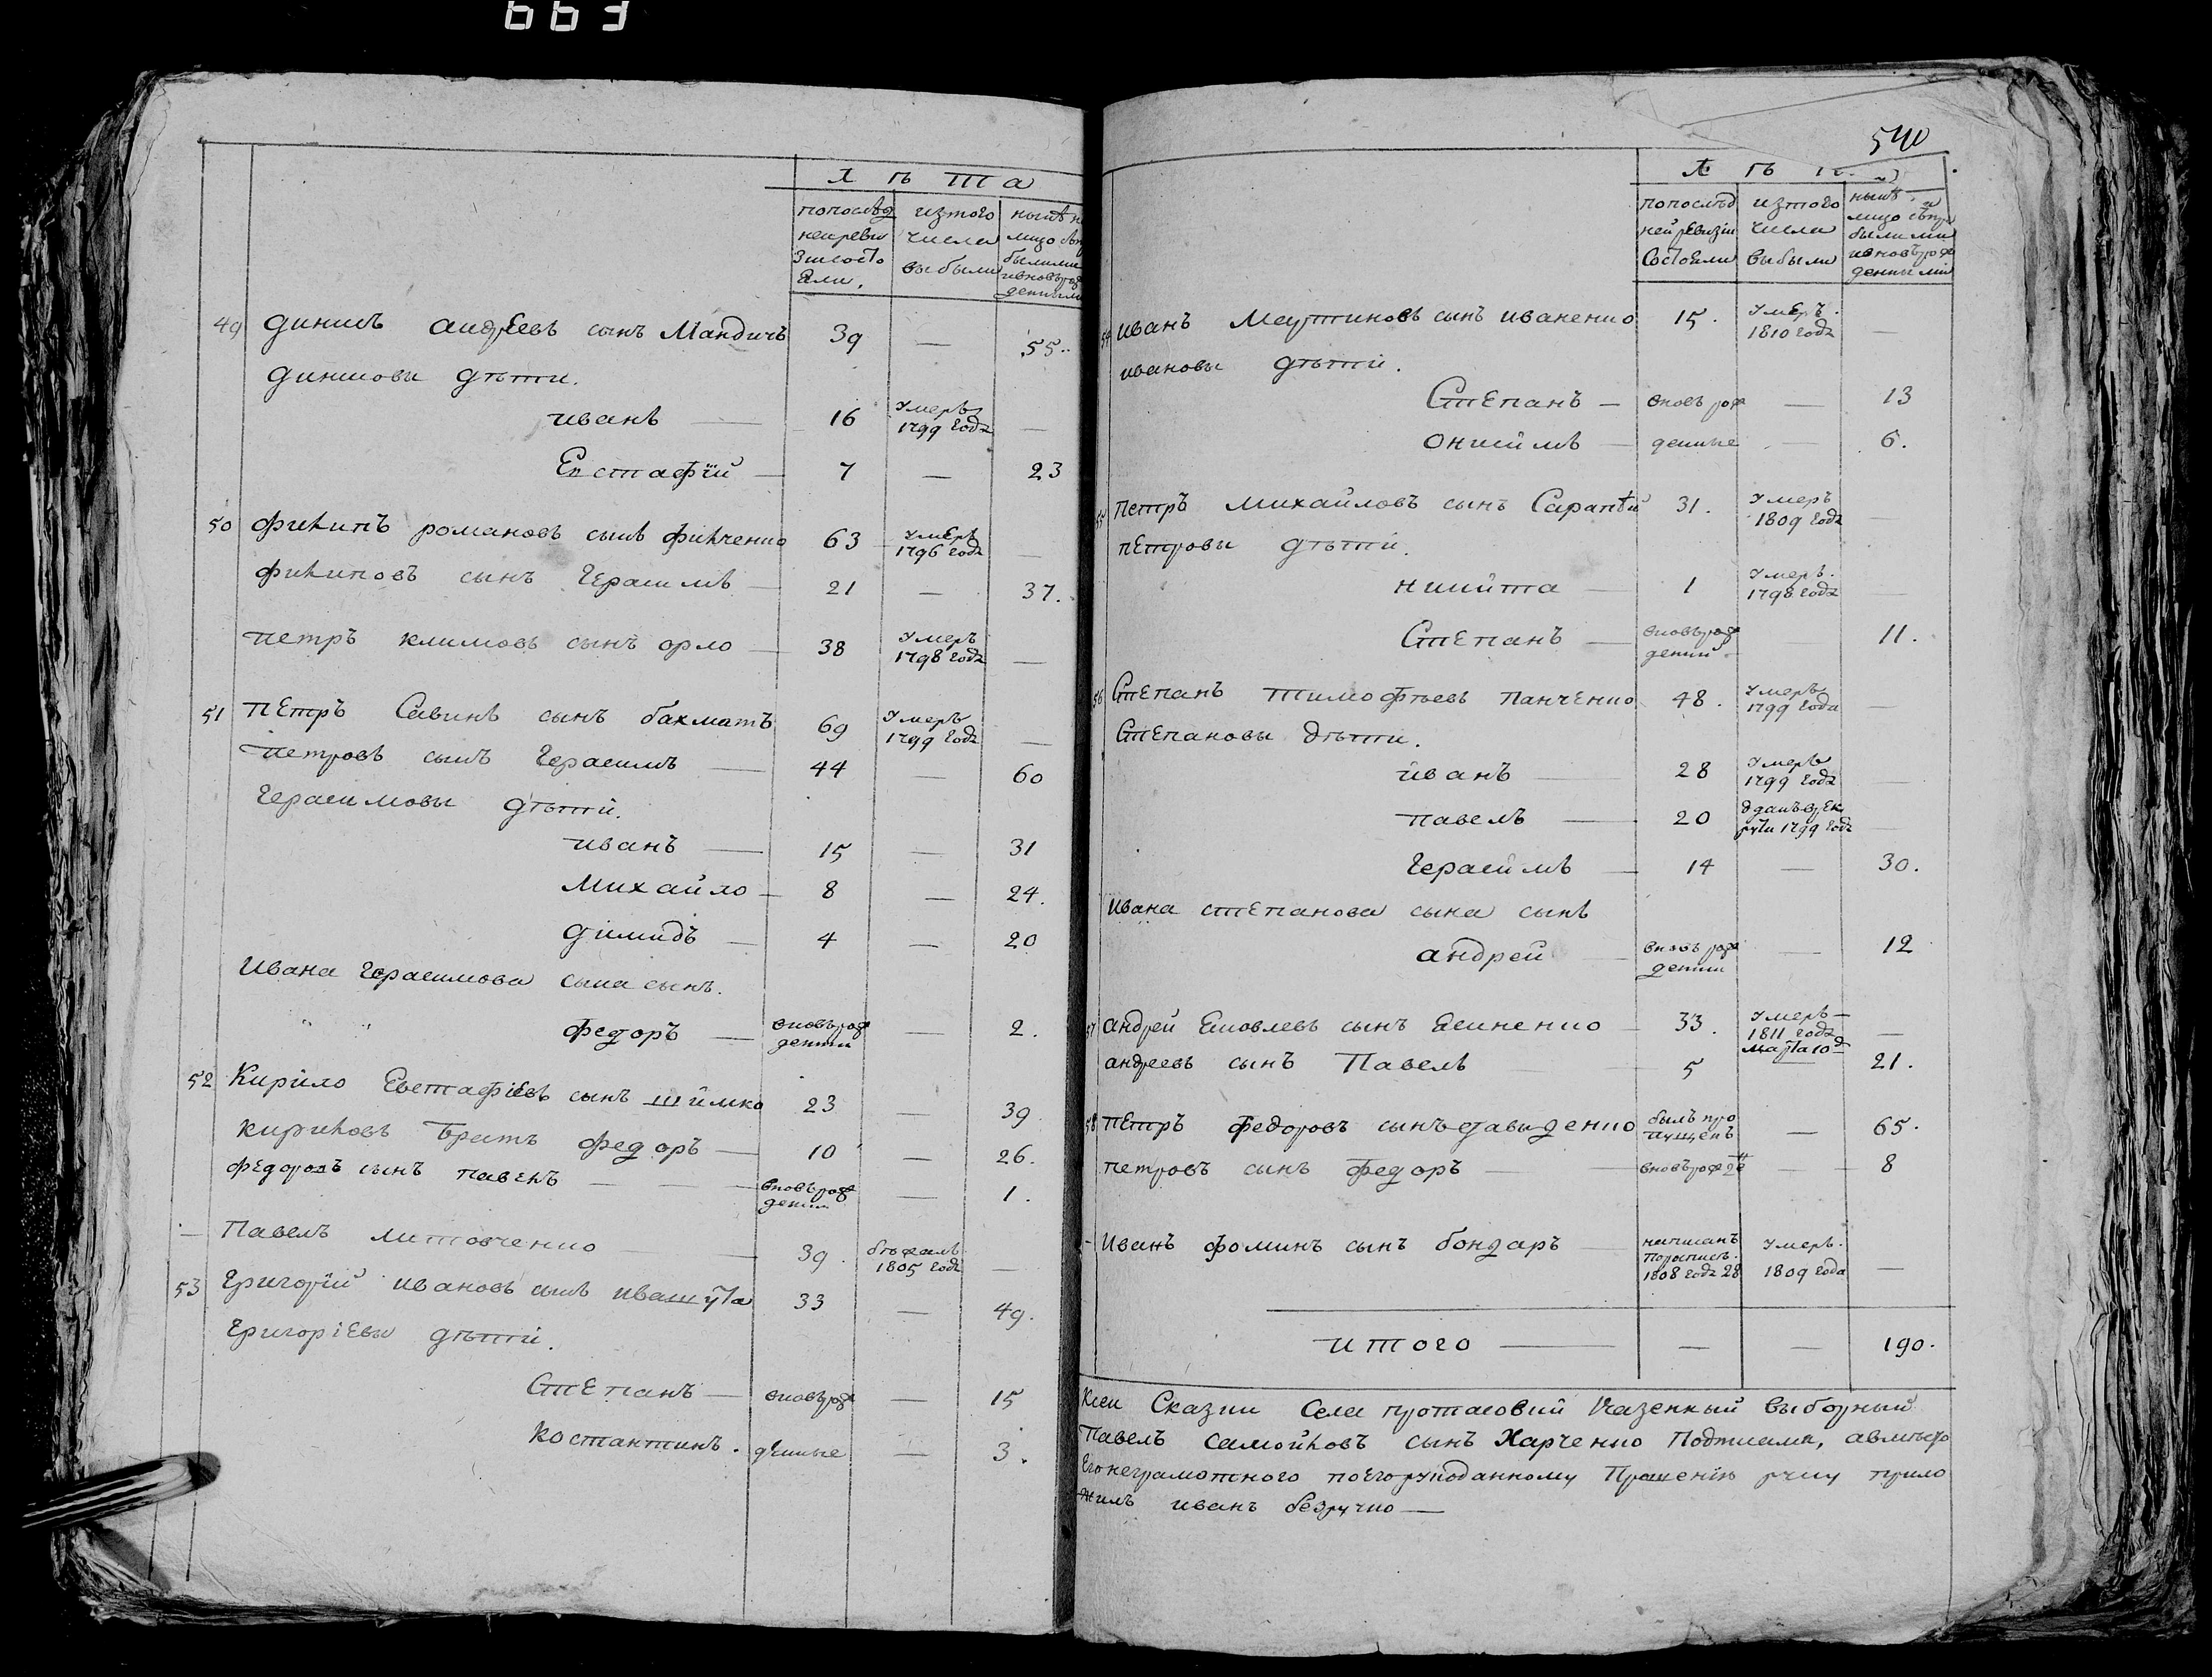 663
лѣта
попослѣд изтого нынѣ н
неиревы числа лицо съпр
зиисосто выбыли былыми
яли. ивновьрож
денными
49 динисъ андрЕевъ сынъ Мандичъ 39 — 55.
динисовы дѣти.
иванъ — 16 Умеръ 1799 года —
Евстафїй — 7 — 23
50 филипъ романовъ сынъ филченко 63 УмЕръ 1796 года —
филиповъ сынъ Герасимъ — 21 — 37.
петръ климовъ сынъ орло — 38 Умеръ 1798 года —
51 пЕтръ Савинъ сынъ бахматъ 69 Умеръ 1799 года —
петровъ сынъ Герасимъ — 44 — 60
Герасимовы дѣти.
иванъ — 15 — 31
Михайло — 8 — 24.
димидъ — 4 — 20
Ивана Герасимова сына сынъ.
федоръ — вновьрож денны — 2.
52 Кирило Евстафіевъ сынъ шимко 23 — 39
кириловъ братъ федоръ — 10 — 26.
федоровъ сынъ павелъ — вновьрож денны — 1.
— Павелъ литовченко — 39. бѣжалъ 1805 года —
53 Григорїй ивановъ сынъ ивашута 33 — 49.
Григоріевы дѣти.
СтЕпанъ — вновьрож — 15
Костантинъ. денные — 3.
540
лѣт
попослѣд изтого нынѣ н
нейревизїи числа лицо съпр
Состояли выбыли были ми
ивновьрож
денными
54 иванъ Мартиновъ сынъ иваненко 15. Умеръ. 1810 года —
ивановы дѣти.
СтЕпанъ — вновь рож — 13
Онисимъ — денные — 6.
55 петръ михайловъ сынъ Сарапѣй 31. Умеръ 1809 года —
пЕтровы дѣти.
никита — 1 Умеръ. 1798 года —
СтЕпанъ — вновьрож денны — 11.
56 СтЕпанъ тимофѣевъ панчЕнко 48. Умеръ 1799 года —
СтЕпановы дѣти.
иванъ — 28 Умеръ 1799 года —
павелъ — 20 Зданъврек руты 1799 года —
Герасимъ — 14 — 30.
Ивана стЕпанова сына сынъ
андрей — вновь рож денны — 12
57 андрей Яковлевъ сынъ Ясиненко — 33. Умеръ — 1811 года марта 10д —
андреевъ сынъ Павелъ — 5 — 21.
58 пЕтръ федоровъ сынъ давиденко былъ про пущенъ — 65.
петровъ сынъ федоръ — вновьрожде — 8
— Иванъ фоминъ сынъ бондаръ написанъ пораписъ. 1808 года 28 Умеръ. 1809 года —
итого — — — 190.
Ксеи Сказки Села протасовки Казенный выборный
Павелъ Самойловъ сынъ Харченко Подписалъ, авмѣсто
Егонеграмотного поЕгорукоданному Прошенїю руку прило
жилъ иванъ безручко —